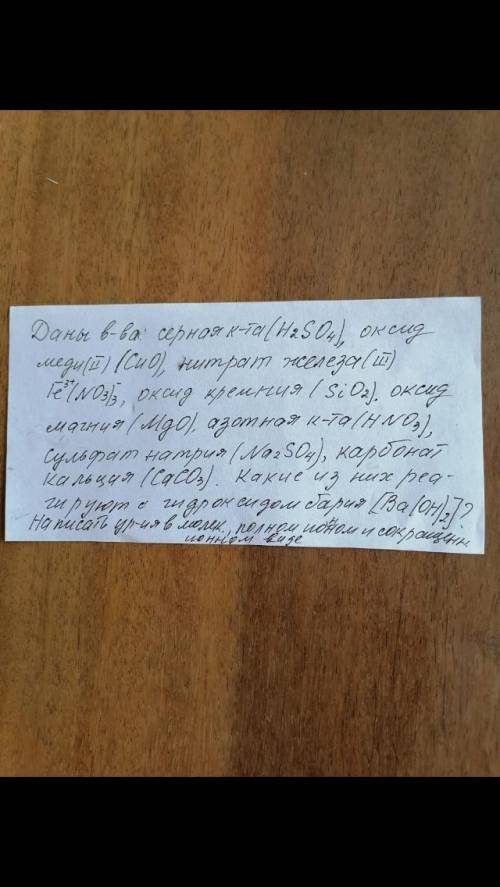 Даны в-ва: серная к-та (H₂SO₄), оксид
меди (II) (CuO), нитрат железа (III)
Fe³⁺(NO₃)₃, оксид кремния (SiO₂), оксид
магния (MgO), азотная к-та (HNO₃),
сульфат натрия (Na₂SO₄), карбонат
кальция (CaCO₃). Какие из них реа-
гируют с гидроксидом бария [Ba(OH)₂]?
Написать ур-ия в молек., полном ионом и сокращенн
ионном виде